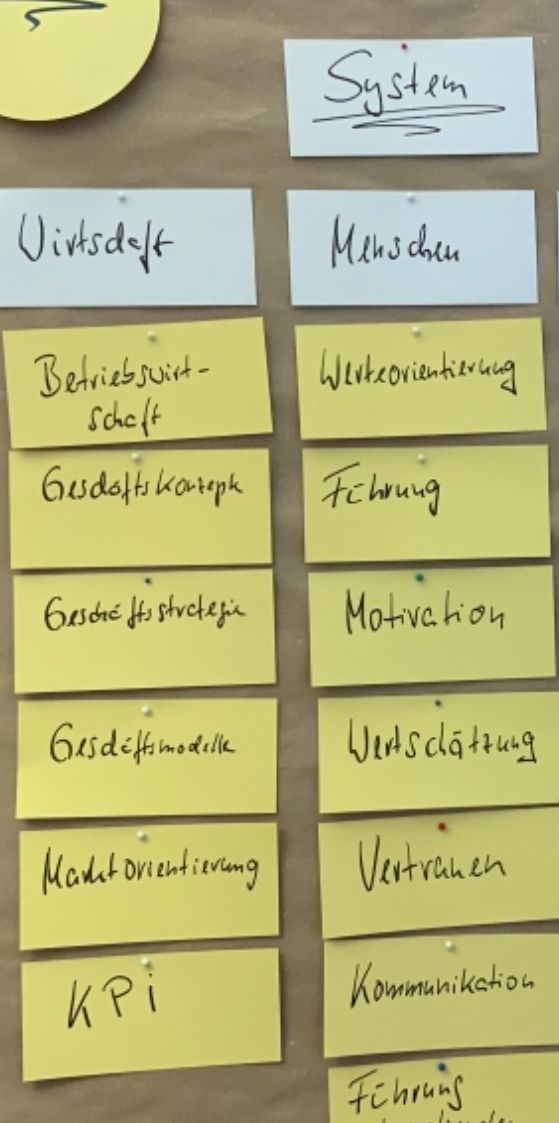 System
Wirtschaft
Betriebswirt-
schaft
Geschäftskonzepte
Geschäftsstrategie
Geschäftsmodelle
Marktorientierung
KPi
Menschen
Werteorientierung
Führung
Motivation
Wertschätzung
Vertrauen
Kommunikation
Führung